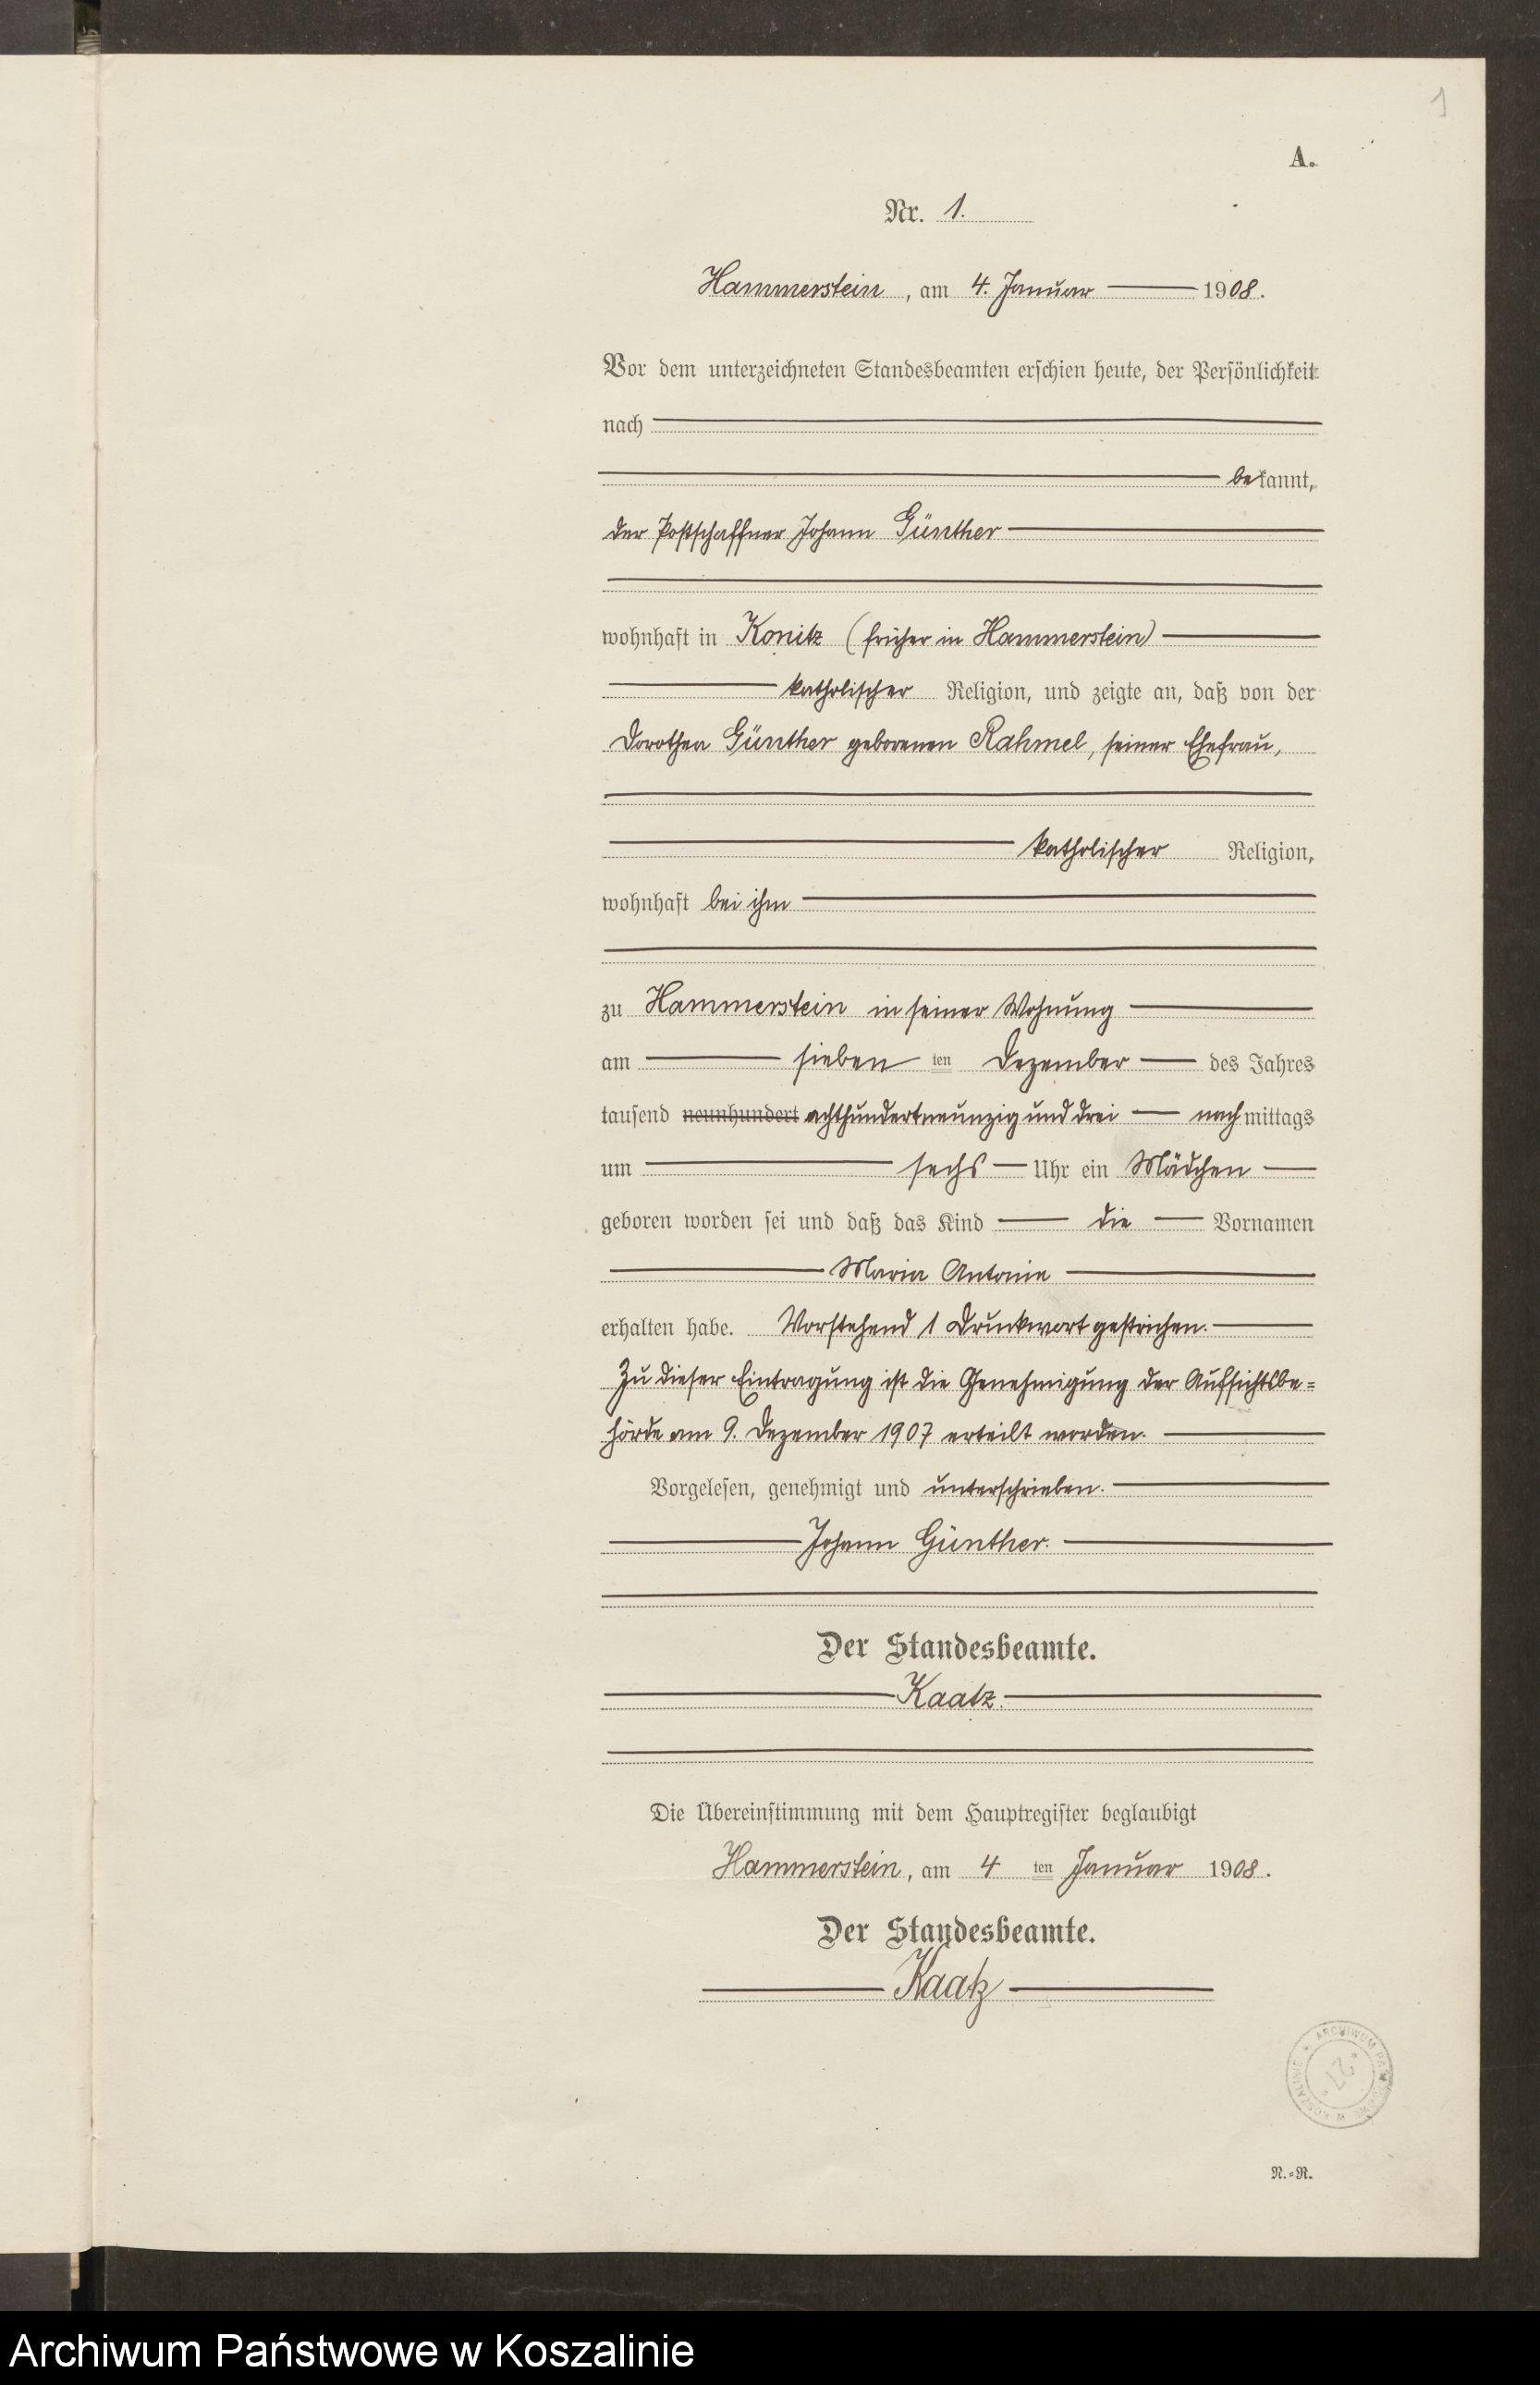 1
A.
Nr. 1.
Hammerstein, am 4. Januar 1908.
Vor dem unterzeichneten Standesbeamten erschien heute, der Persönlichkeit
nach
bekannt,
der Postschaffner Johann Günther
wohnhaft in Konitz (früher in Hammerstein)
katholischer Religion, und zeigte an, daß von der
Dorothea Günther geborenen Rahmel, seiner Ehefrau,
katholischer Religion,
wohnhaft bei ihm
zu Hammerstein in seiner Wohnung
am sieben ten Dezember des Jahres
tausend neunhundert achthundertneunzig und drei nachmittags
um sechs Uhr ein Mädchen
geboren worden sei und daß das Kind die Vornamen
Maria Antonie
erhalten habe. Vorstehend 1 Druckwort gestrichen.
Zu dieser Eintragung ist die Genehmigung der Aufsichtsbe=
hörde am 9. Dezember 1907 erteilt worden.
Vorgelesen, genehmigt und unterschrieben.
Johann Günther.
Der Standesbeamte.
Kaatz.
Die Übereinstimmung mit dem Hauptregister beglaubigt
Hammerstein, am 4 ten Januar 1908.
Der Standesbeamte.
Kaatz
ARCHIWUM PAŃSTWOWE W KOSZALINIE
27
N.=R.
Archiwum Państwowe w Koszalinie